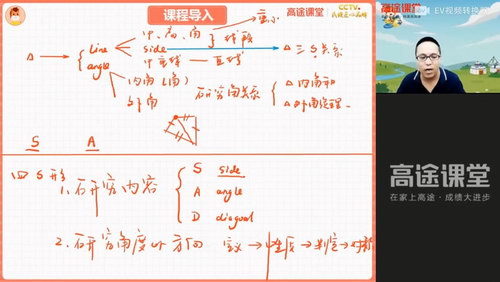 课程导入
高途课堂
CCTV
EV视频转换器
中、高、角
Line
side
angle
中垂线
△三边关系
内角(角)
外角
研究角关系
△内角和
△外角定理
S A
四边形
1、研究内容
S side
A angle
D diagonal
2、研究角度or方向 定义→性质→判定→
高途课堂
在家上高途·成绩大进步